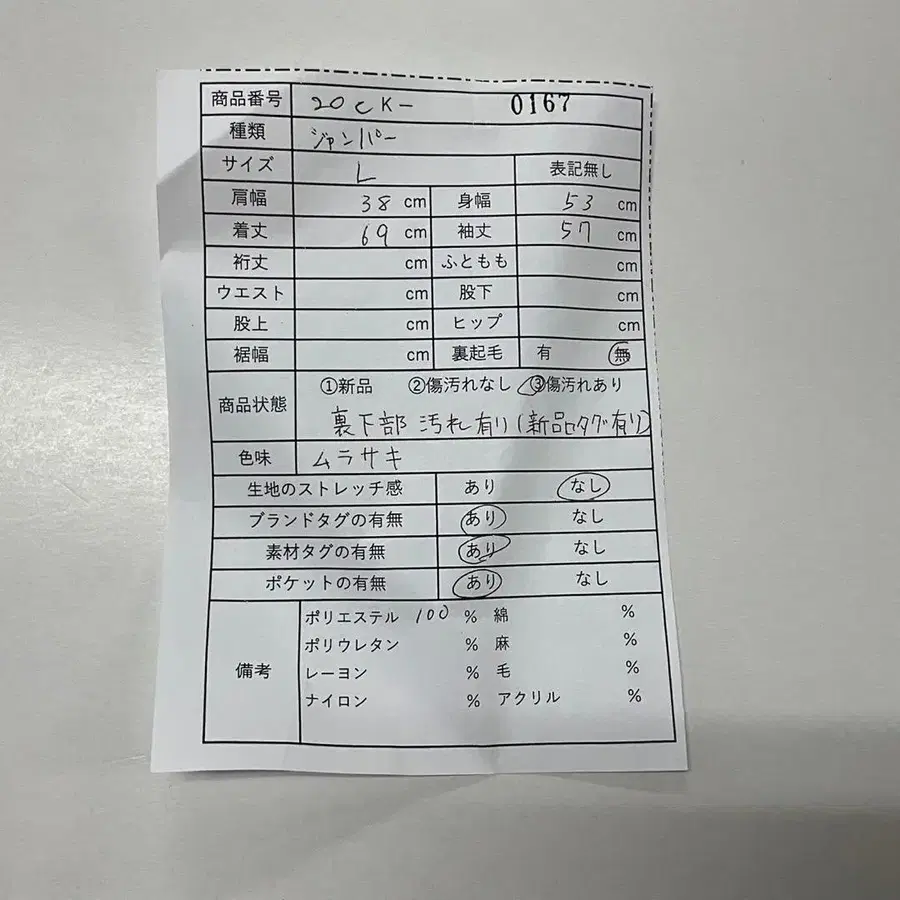 商品番号 20CK- 0167
種類 ジャンパー
サイズ L 表記無し
肩幅 38 cm 身幅 53 cm
着丈 69 cm 袖丈 57 cm
裄丈 cm ふともも cm
ウエスト cm 股下 cm
股上 cm ヒップ cm
裾幅 cm 裏起毛 有 無
商品状態 ①新品 ②傷汚れなし ③傷汚れあり
裏下部 汚れ有り(新品タグ有り)
色味 ムラサキ
生地のストレッチ感 あり なし
ブランドタグの有無 あり なし
素材タグの有無 あり なし
ポケットの有無 あり なし
備考
ポリエステル 100 % 綿 %
ポリウレタン % 麻 %
レーヨン % 毛 %
ナイロン % アクリル %